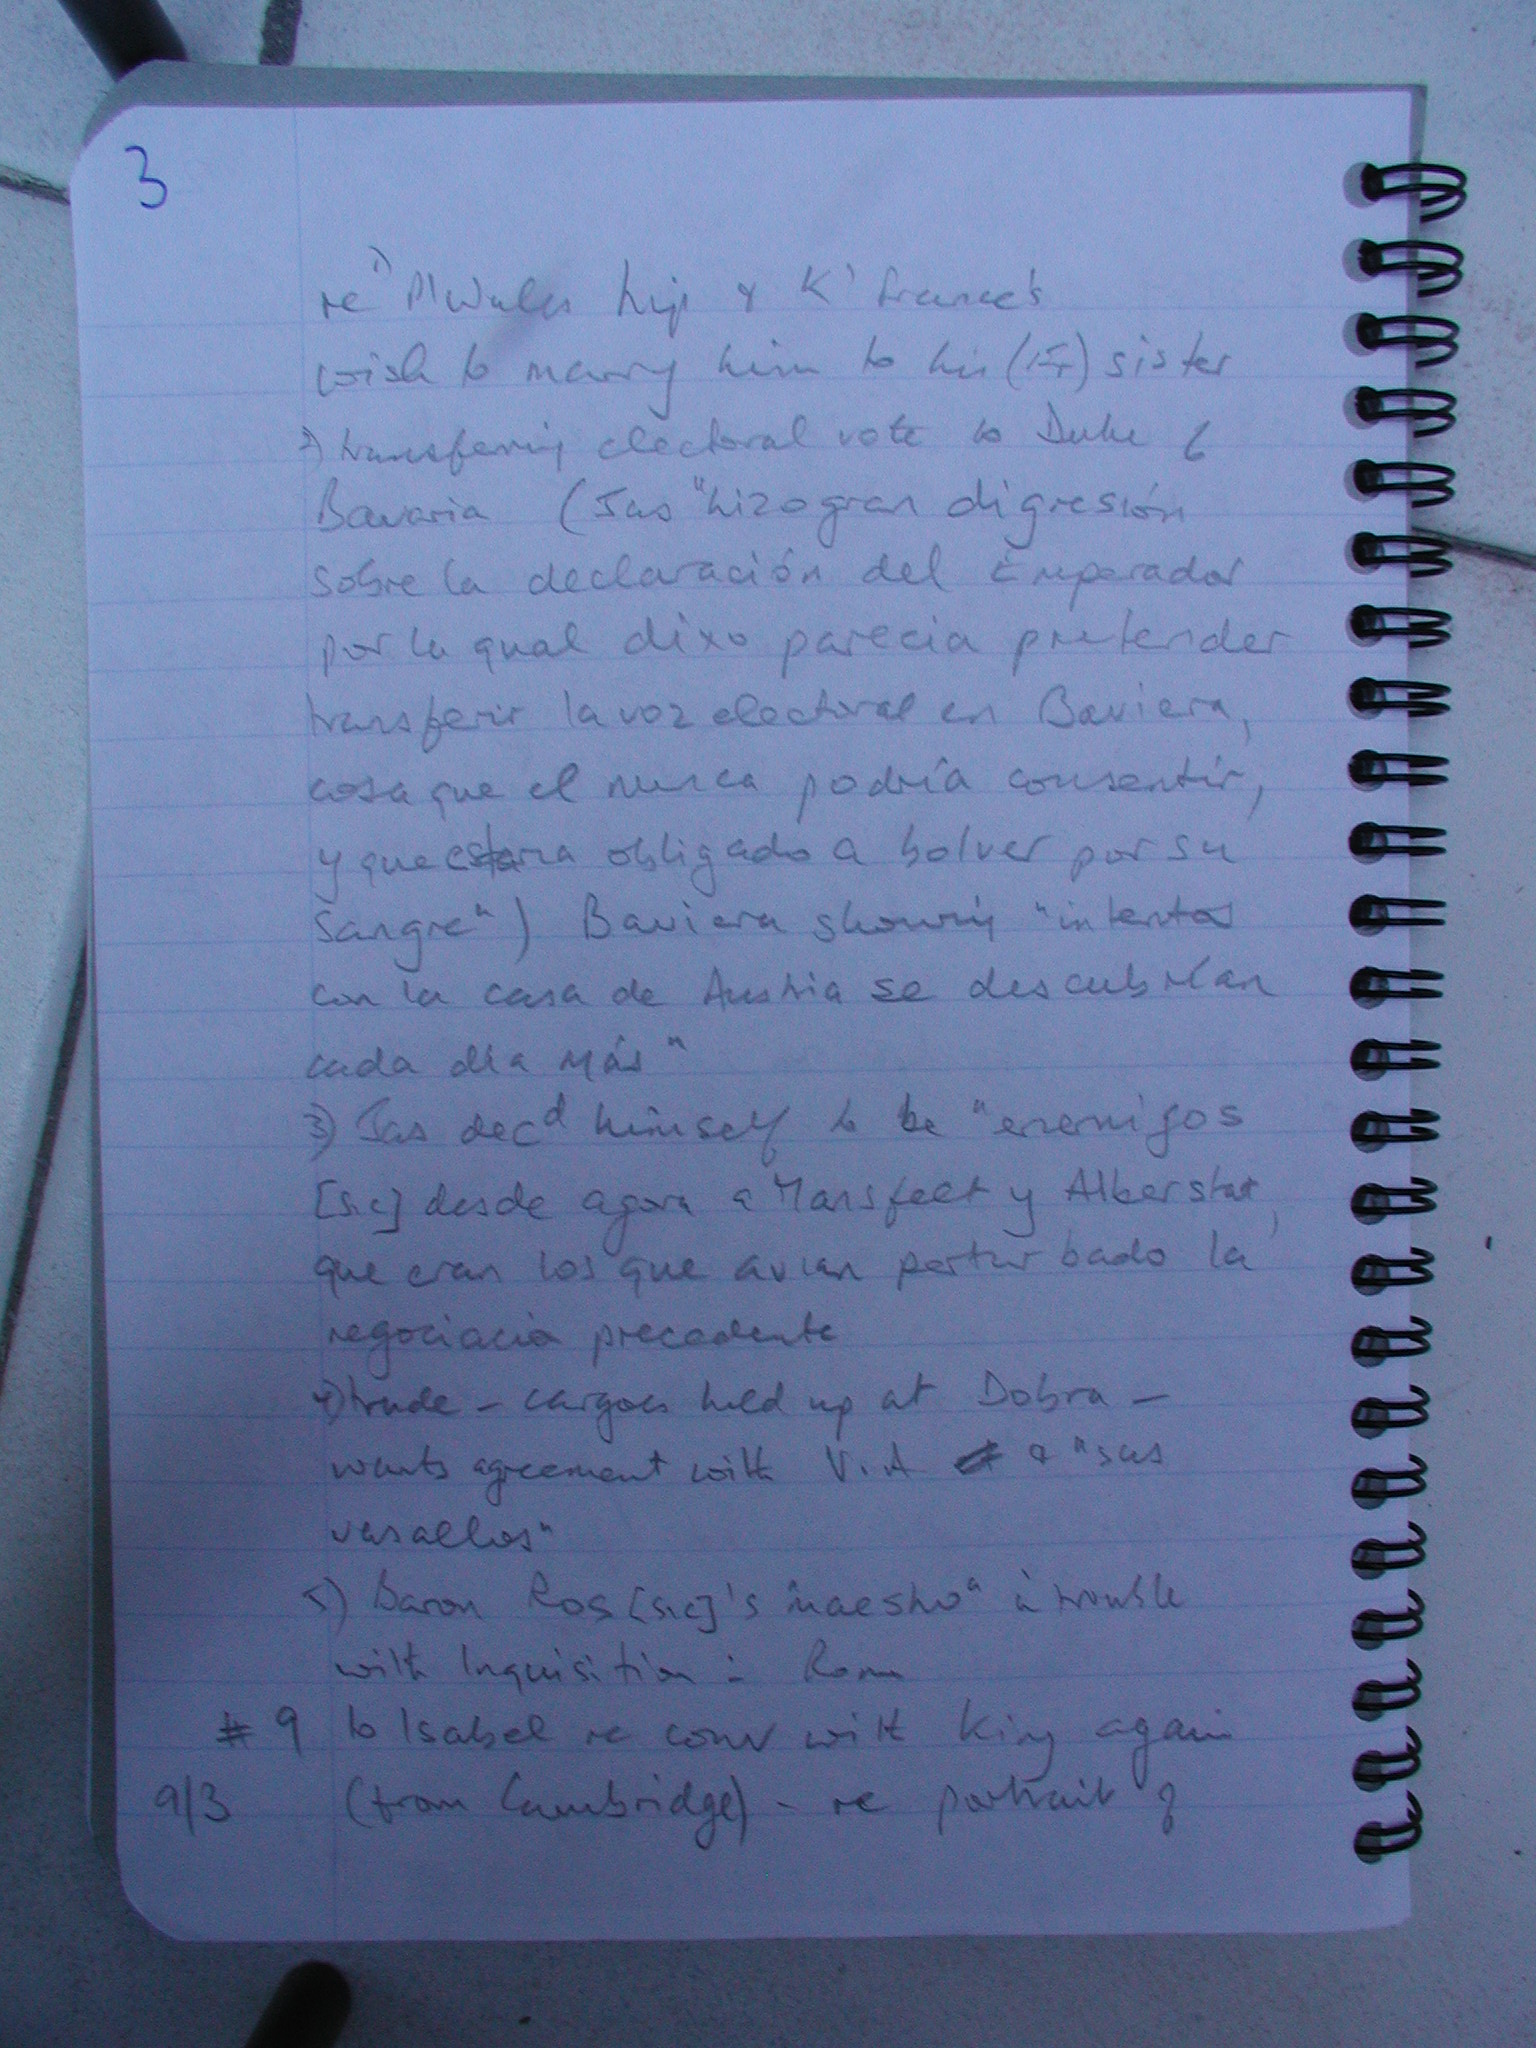 3
re 1) P'Wales trip & K' France's
wish to marry him to his sister
2) transferring electoral vote to Duke
Bavaria (Jas "hizo gran digresión
sobre la declaración del Emperador
por la qual dixo parecia pretender
transferir la voz electoral en Baviera,
cosa que el nunca podría consentir,
y que estaria obligado a bolver por su
sangre") Baviera showing "intentos
con la casa de Austria se descubrían
cada día más"
3) Jas decd himself to be "enemigos
[sic] desde agora a Mansfelt y Alberstat,
que eran los que avian perturbado la
negociación precedente
4) trade - cargoes held up at Dobra -
wants agreement with V.A & "sus
vasallos"
5) Baron Ros [sic]'s "maestro" in trouble
with Inquisition in Rome
# 9 to Isabel re conv with King again
9/3 (from Cambridge) - re portrait of